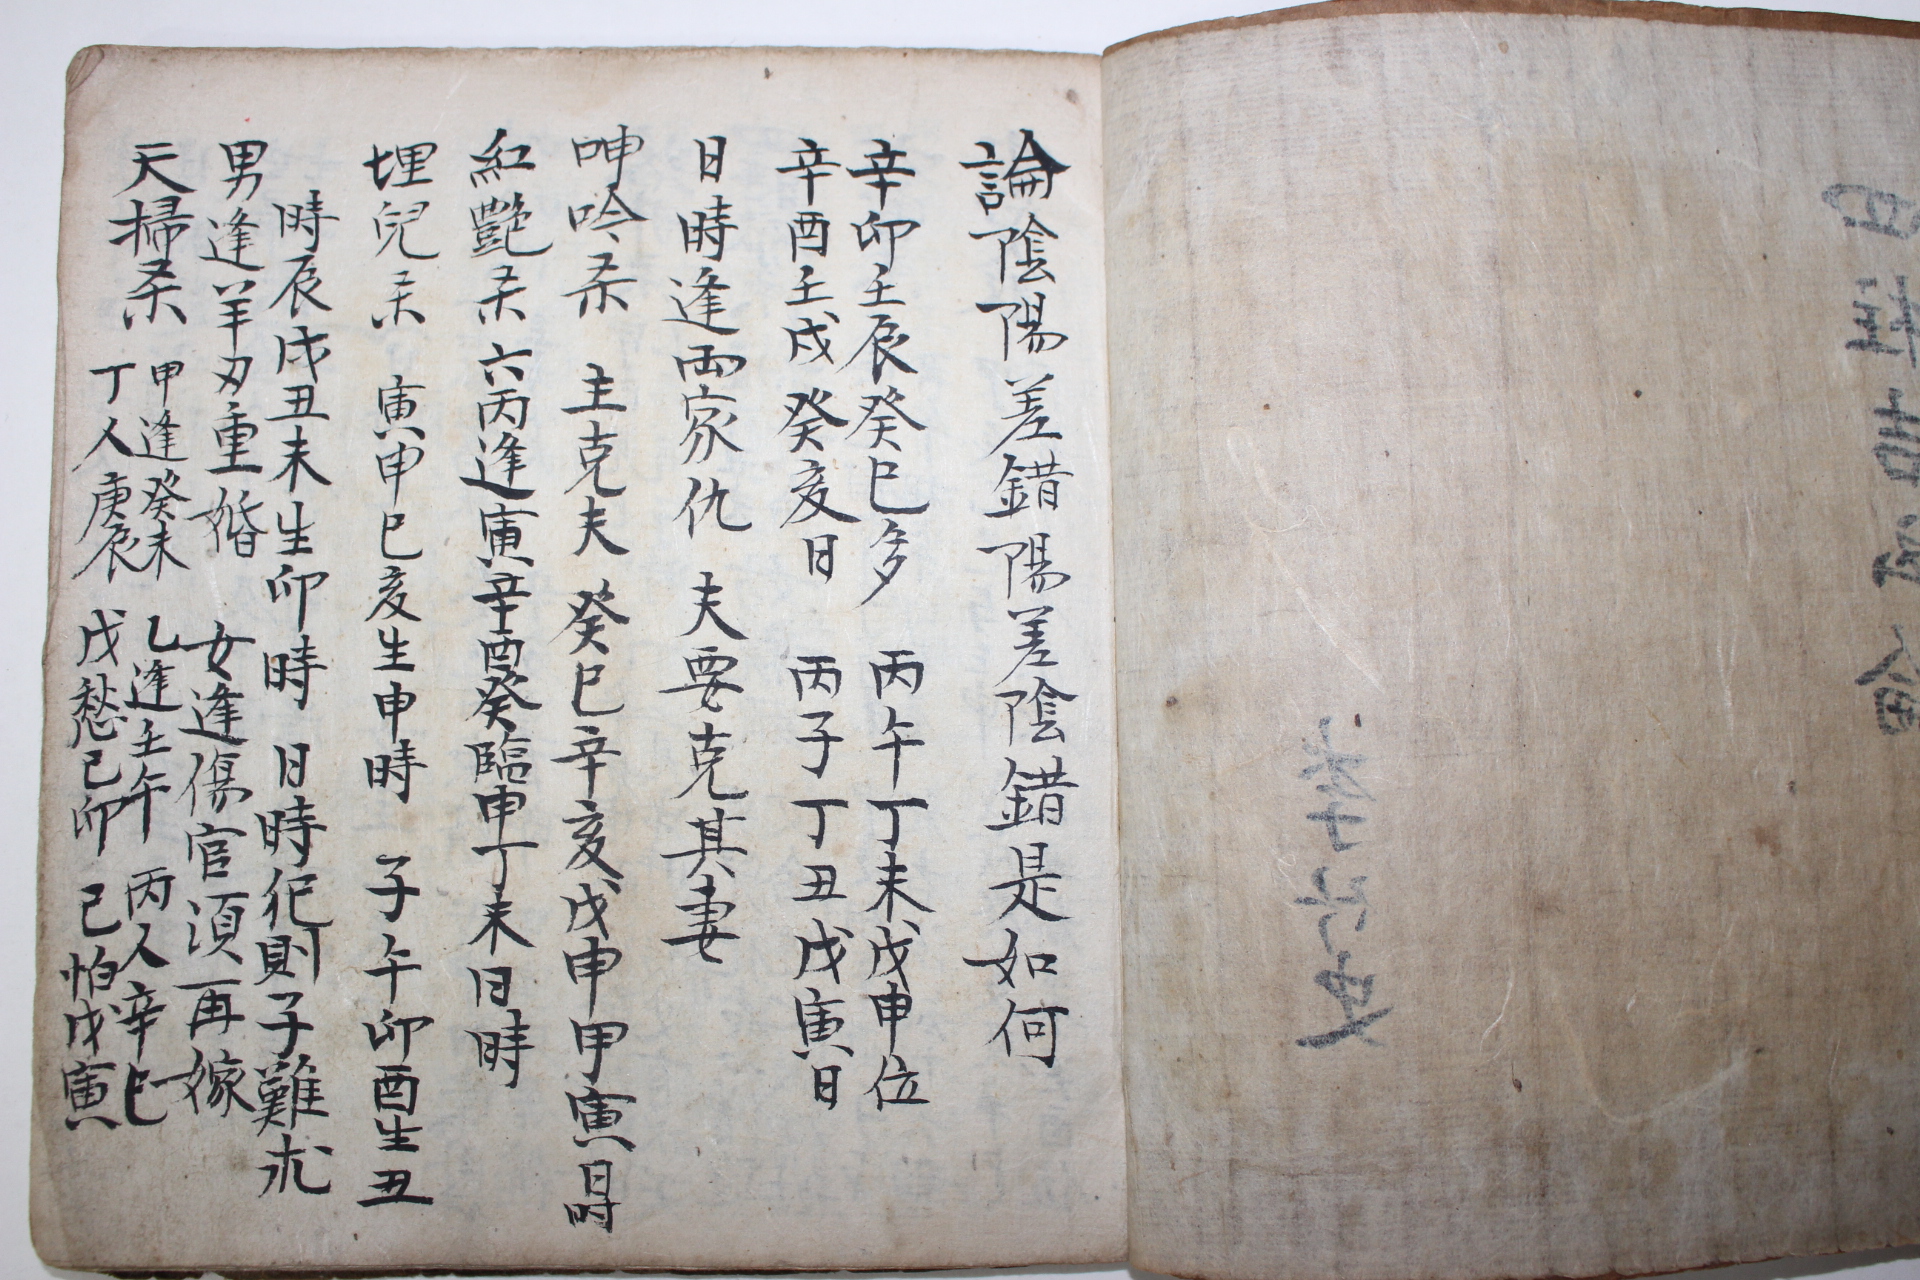 四柱吉凶論
論陰陽差錯陽差陰錯是如何
辛卯壬辰癸巳多 丙午丁未戊申位
辛酉壬戌癸亥日 丙子丁丑戊寅日
日時逢兩家仇 夫要克其妻
呻吟杀 主克夫 癸巳辛亥戊申甲寅日時
紅艶杀 六丙逢寅辛酉癸臨申丁未日時
埋兒杀 寅申巳亥生申時 子午卯酉生丑
時辰戌丑未生卯時 日時犯則子難求
男逢羊刃重婚 女逢傷官須再嫁
天掃杀 甲逢癸未 乙逢壬午 丙人辛巳
丁人庚辰 戊愁己卯 己怕戊寅